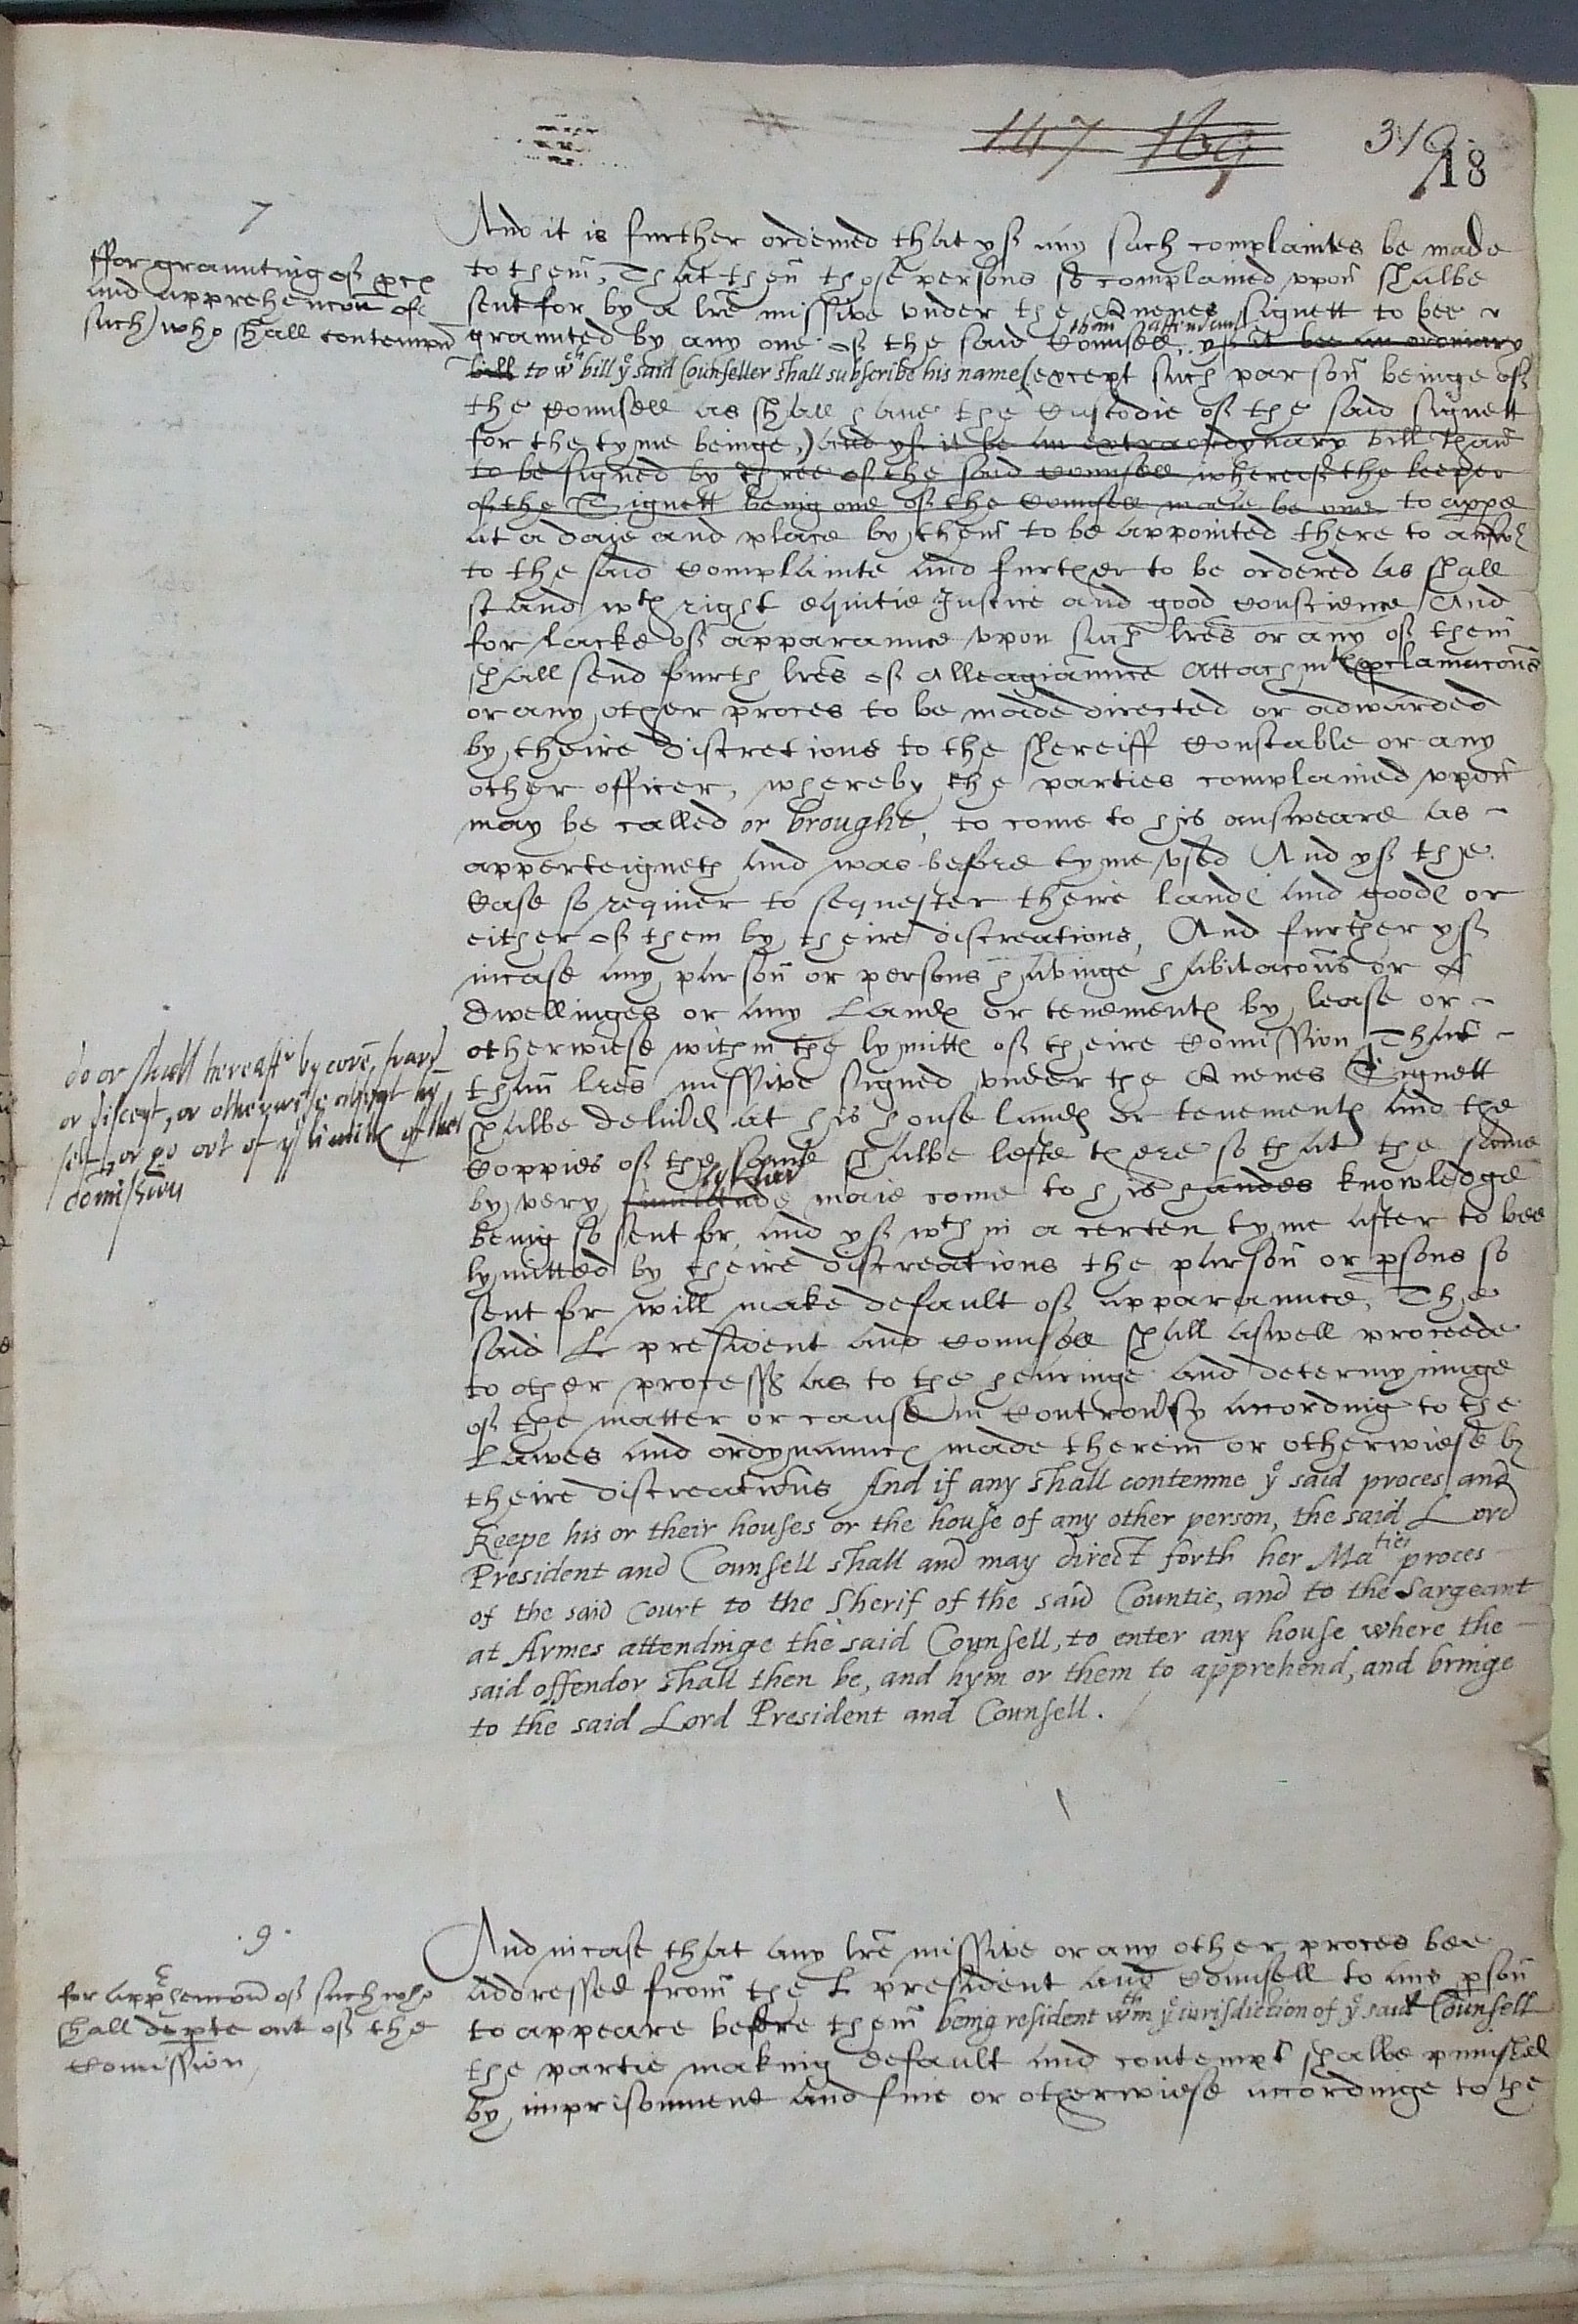 147 169 340
18
7
ffor graunting of
and apprehencon of
such who shall contempn
And it is further ordeined that yf any such complaintes be made
to them, That then those persons so complained vpon shalbe
sent for by a lre missive vnder the Quenes Signett to bee
graunted by any one of the said Counsell, yf it bee an ordinary
than attendant
bill to wch bill ye said Counseller shall subscribe his name (except such parson beinge of
the Counsell as shall have the Custodie of the said signett
for the tyme beinge,) and yf it be an extraordynary bill than
to be signed by three of the said Counsell whereof the keeper
of the Signett being one of the Counsell maie be one to appe
at a daye and place by them to be appointed there to answ
to the said Complainte and further to be ordered as shall
stand wth right equitie Justice and good Conscience And
for lacke of apparaunce vpon such lres or any of them
shall send furth lres of Alleagiaunce Attachmt proclamacons
or any other proces to be made directed or adwarded
by theire discretions to the Shereiff Constable or any
other officer, whereby the parties complained vpon
may be called or brought, to come to his answeare as
apperteigneth and was before tyme vsed And yf the
Case so requier to sequester theire landes and goodes or
either of them by theire discreations, And further yf
incase any parson or persons havinge habitacons or
dwellinges or any Landes or tenementes by lease or
otherwiese within the lymittes of theire Comission That
do or shall hereaftr by covin, fraud
or disceyt, or otherwise absent him
self, or go out of ye limittes of their
Comission
than lres missive signed vnder the Quenes Signett
shalbe deliverd at his house landes or tenementes and the
Coppies of the same shalbe lefte there so that the same
by very maie come to his handes knowledge
being so sent for, and yf wth in a certen tyme after to bee
lymitted by theire discreations the parson or psons so
sent for will make default of apparaunce, The
said L president and Counsell shall aswell proceede
to other processe as to the hearinge and determyninge
of the matter or cause in Controvsy according to the
Lawes and ordynaunces made therein or otherwiese by
theire discreations And if any shall contemne ye said proces and
Keepe his or their houses or the house of any other person, the said Lord
President and Counsell shall and may direct forth her Maties proces
of the said Court to the Sherif of the said Countie, and to the Sargeant
at Armes attendinge the said Counsell, to enter any house where the
said offendor shall then be, and hym or them to apprehend, and bringe
to the said Lord President and Counsell.
.9.
for apprehencon of such who
shall depte out of the
Comission
And incase that any lre missive or any other proces bee
addressed from the L president and Counsell to any pson
to appeare before them being resident wthin ye iurisdiction of ye said Counsell
the partie making default and contempt shalbe punished
by imprisonment and fine or otherwiese accordinge to the